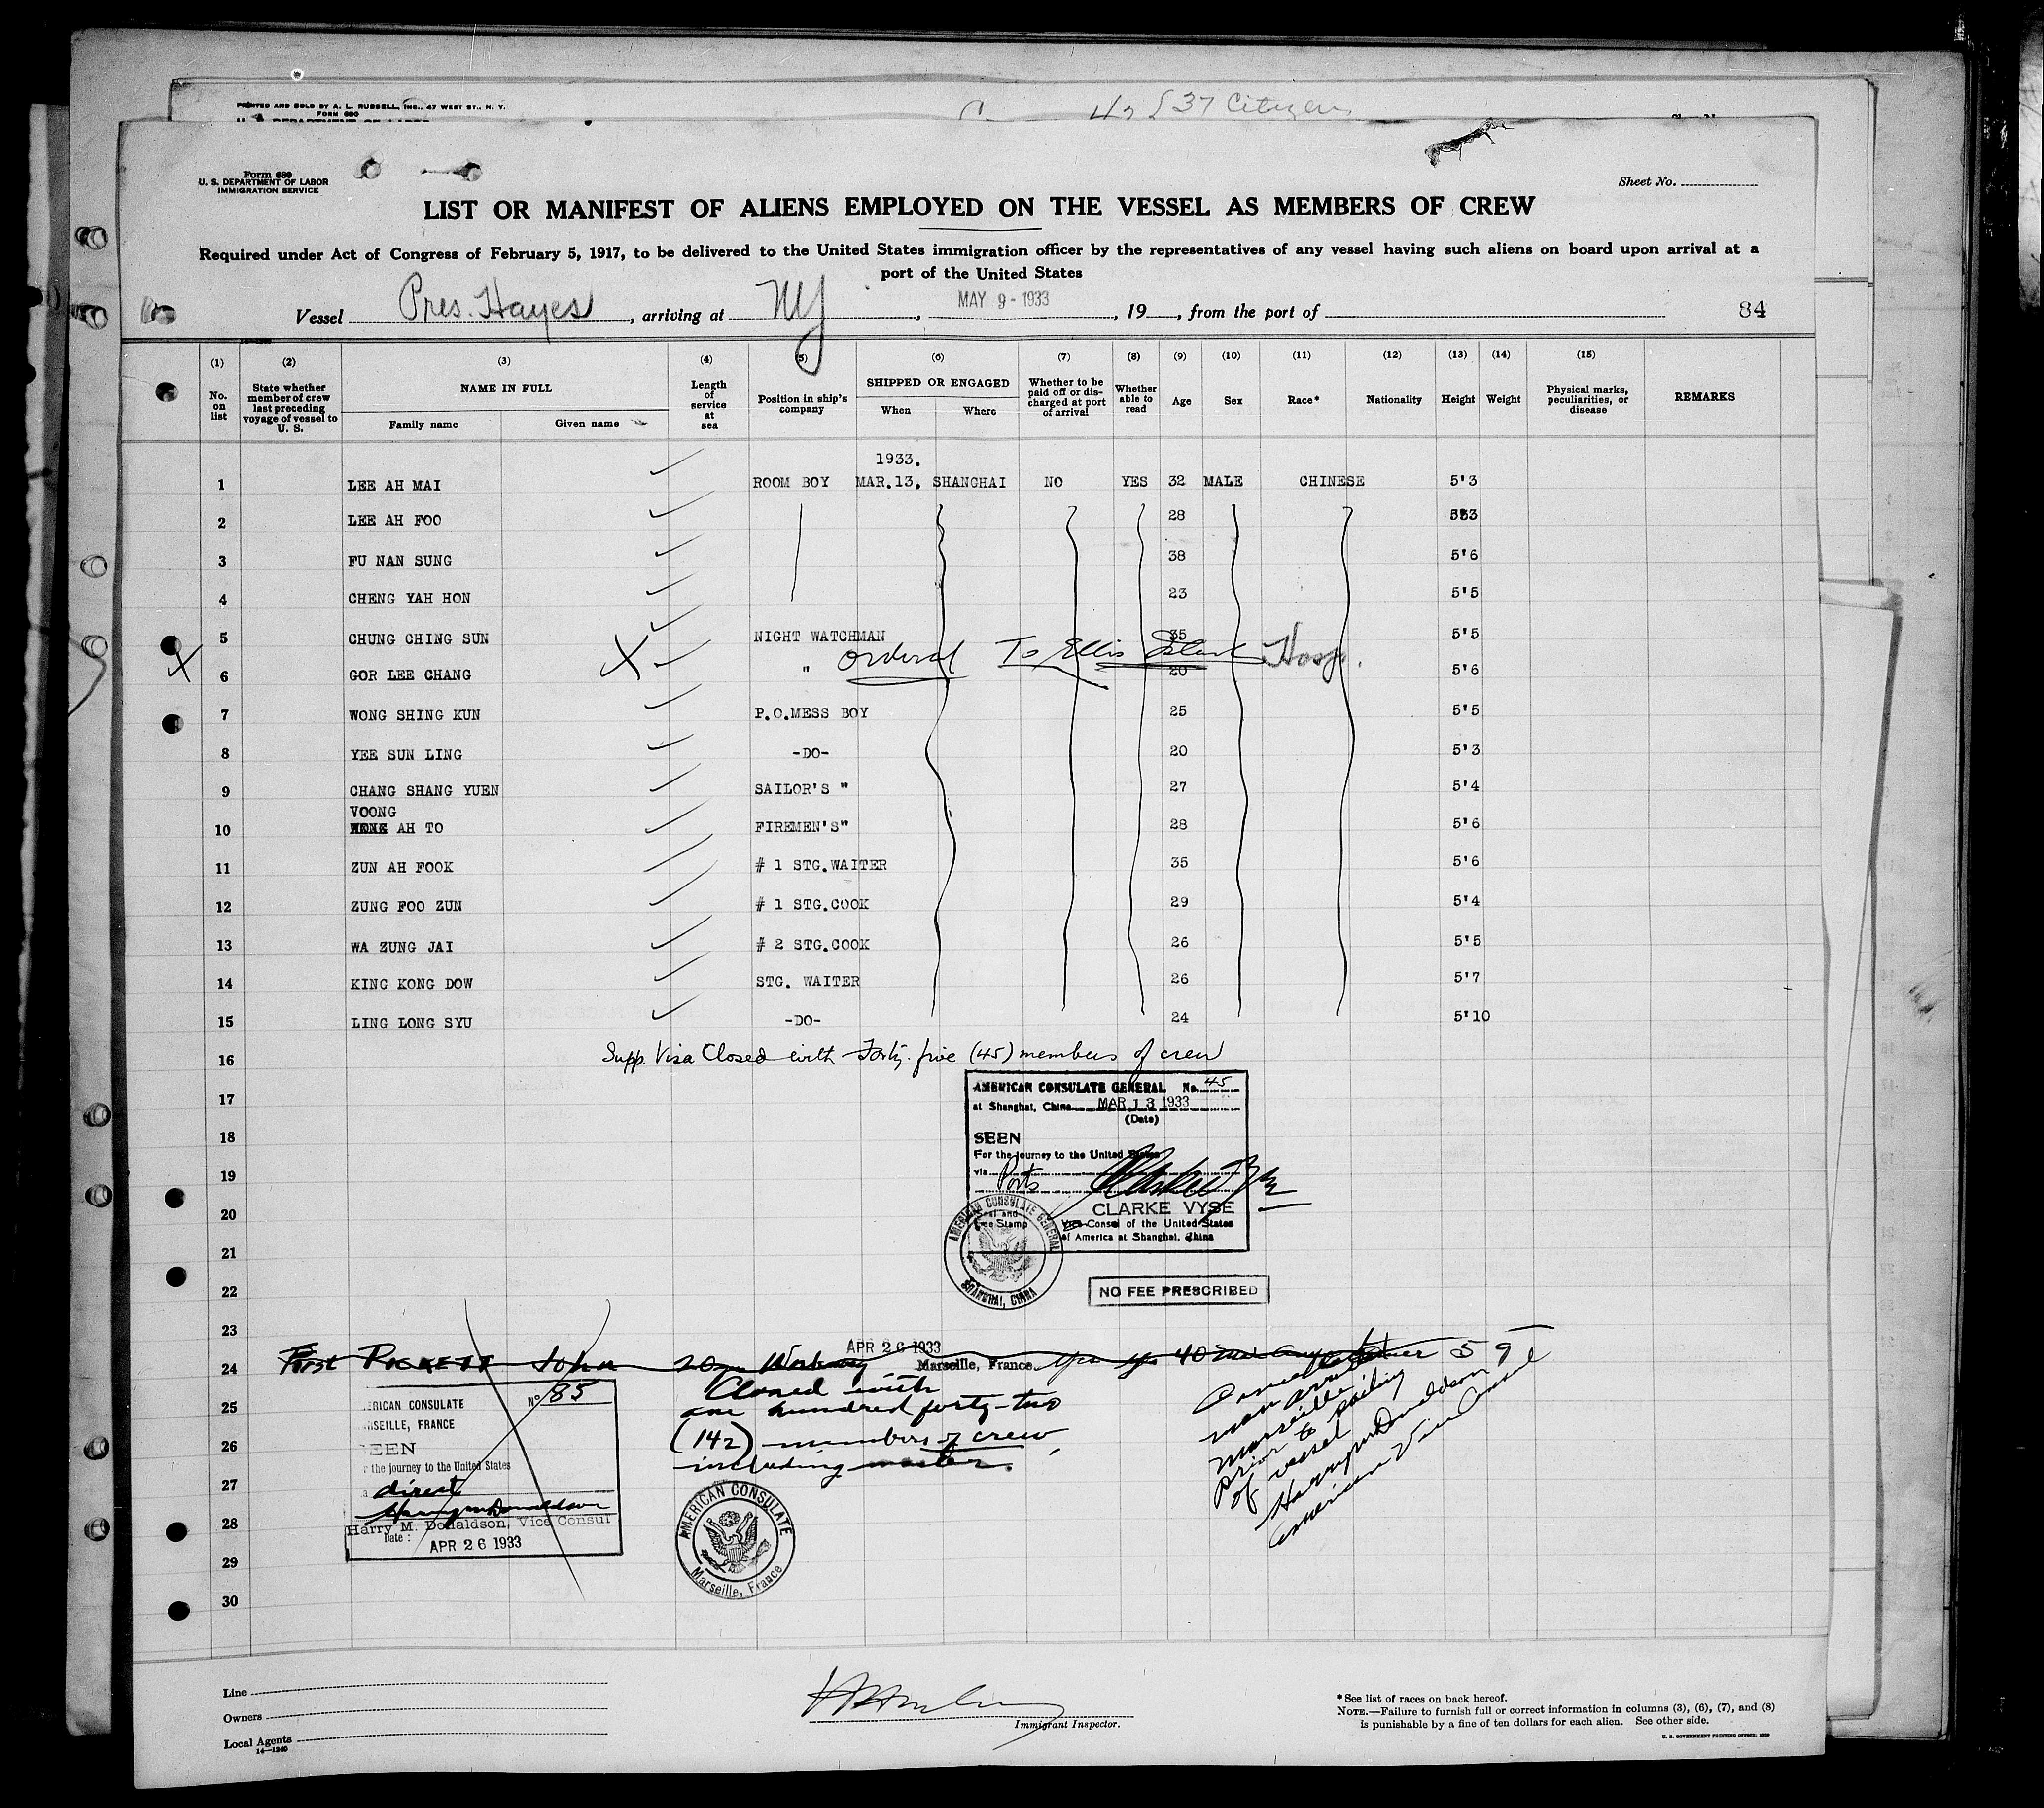 PRINTED AND SOLD BY A. L. RUSSELL, INC., 47 WEST ST., N. Y.
FORM 680
37 Citizens
Form 680
U. S. DEPARTMENT OF LABOR
IMMIGRATION SERVICE
Sheet No.
LIST OR MANIFEST OF ALIENS EMPLOYED ON THE VESSEL AS MEMBERS OF CREW
Required under Act of Congress of February 5, 1917, to be delivered to the United States immigration officer by the representatives of any vessel having such aliens on board upon arrival at a
port of the United States
Vessel Pres. Hayes, arriving at NY, MAY 9 - 1933, 19, from the port of 84
(1) (2) (3) (4) (5) (6) (7) (8) (9) (10) (11) (12) (13) (14) (15)
No. on list State whether member of crew last preceding voyage of vessel to U. S. NAME IN FULL Family name Given name Length of service at sea Position in ship's company SHIPPED OR ENGAGED When Where Whether to be paid off or discharged at port of arrival Whether able to read Age Sex Race* Nationality Height Weight Physical marks, peculiarities, or disease REMARKS
1933.
1 LEE AH MAI ROOM BOY MAR.13, SHANGHAI NO YES 32 MALE CHINESE 5'3
2 LEE AH FOO 28 5'3
3 FU NAN SUNG 38 5'6
4 CHENG YAH HON 23 5'5
5 CHUNG CHING SUN NIGHT WATCHMAN 35 5'5
Ordered To Ellis Island Hosp.
6 GOR LEE CHANG " 20 5'6
7 WONG SHING KUN P.O.MESS BOY 25 5'5
8 YEE SUN LING -DO- 20 5'3
9 CHANG SHANG YUEN SAILOR'S " 27 5'4
VOONG
10 AH TO FIREMEN'S" 28 5'6
11 ZUN AH FOOK # 1 STG.WAITER 35 5'6
12 ZUNG FOO ZUN # 1 STG.COOK 29 5'4
13 WA ZUNG JAI # 2 STG.COOK 26 5'5
14 KING KONG DOW STG. WAITER 26 5'7
15 LING LONG SYU -DO- 24 5'10
16 Supp. Visa Closed with Forty-five (45) members of crew
17
18
19
20
21
22
23
24
25
26
27
28
29
30
AMERICAN CONSULATE GENERAL No. 45
at Shanghai, China MAR 13 1933
(Date)
SEEN
For the journey to the United States
via Ports
CLARKE VYSE
Seal and
Fee Stamp
Vice-Consul of the United States
of America at Shanghai, China
AMERICAN CONSULATE GENERAL
SHANGHAI, CHINA
NO FEE PRESCRIBED
APR 26 1933
Marseille, France
40
5 9
Closed with
one hundred forty-two
(142) members of crew,
including master.
AMERICAN CONSULATE
Marseille, France
Nº 85
ERICAN CONSULATE
RSEILLE, FRANCE
EEN
r the journey to the United States
direct
Harry M Donaldson
Harry M. Donaldson, Vice Consul
Date :
APR 26 1933
man
Marseille
prior to sailing
of vessel
Harry M Donaldson
American Vice Consul
Line
Owners
Local Agents
14—1240
Immigrant Inspector.
* See list of races on back hereof.
NOTE.—Failure to furnish full or correct information in columns (3), (6), (7), and (8)
is punishable by a fine of ten dollars for each alien. See other side.
U. S. GOVERNMENT PRINTING OFFICE: